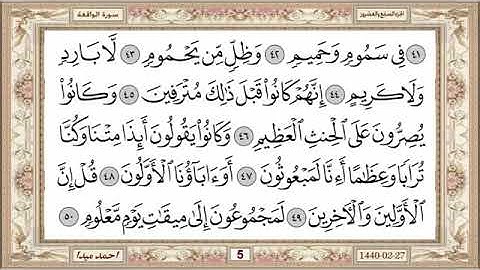 الجزء السابع والعشرون
سورة الواقعة
٤١ فِي سَمُومٍ وَحَمِيمٍ ٤٢ وَظِلٍّ مِّن يَحْمُومٍ ٤٣ لَّا بَارِدٍ
وَلَا كَرِيمٍ ٤٤ إِنَّهُمْ كَانُوا۟ قَبْلَ ذَٰلِكَ مُتْرَفِينَ ٤٥ وَكَانُوا۟
يُصِرُّونَ عَلَى ٱلْحِنثِ ٱلْعَظِيمِ ٤٦ وَكَانُوا۟ يَقُولُونَ أَئِذَا مِتْنَا وَكُنَّا
تُرَابًا وَعِظَٰمًا أَءِنَّا لَمَبْعُوثُونَ ٤٧ أَوَءَابَآؤُنَا ٱلْأَوَّلُونَ ٤٨ قُلْ إِنَّ
ٱلْأَوَّلِينَ وَٱلْءَاخِرِينَ ٤٩ لَمَجْمُوعُونَ إِلَىٰ مِيقَٰتِ يَوْمٍ مَّعْلُومٍ ٥٠
1440-02-27
5